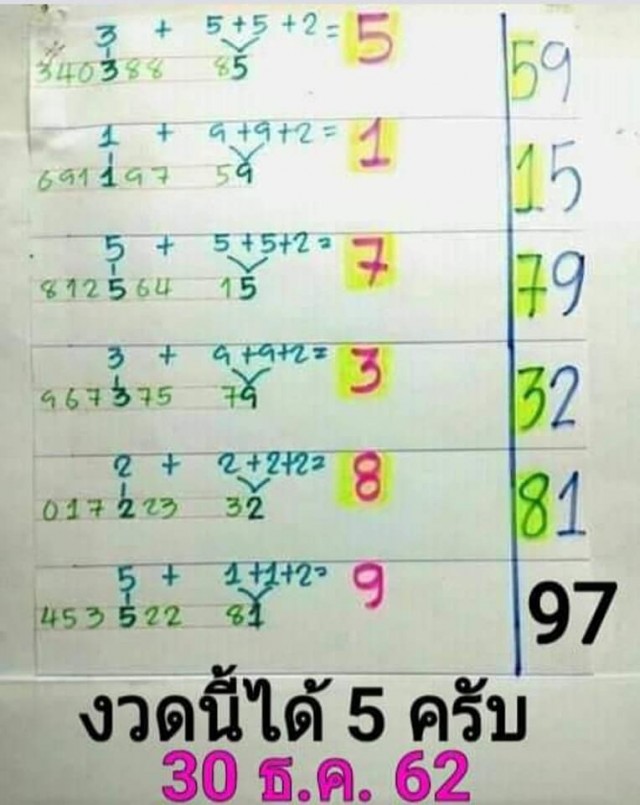 3 + 5+5+2= 5
340388 85 59
1 + 9+9+2= 1
691197 59 15
5 + 5+5+2= 7
812564 15 79
3 + 9+9+2= 3
967375 79 32
2 + 2+2+2= 8
017223 32 81
5 + 1+1+2= 9
453522 81 97
งวดนี้ได้ 5 ครับ
30 ธ.ค. 62